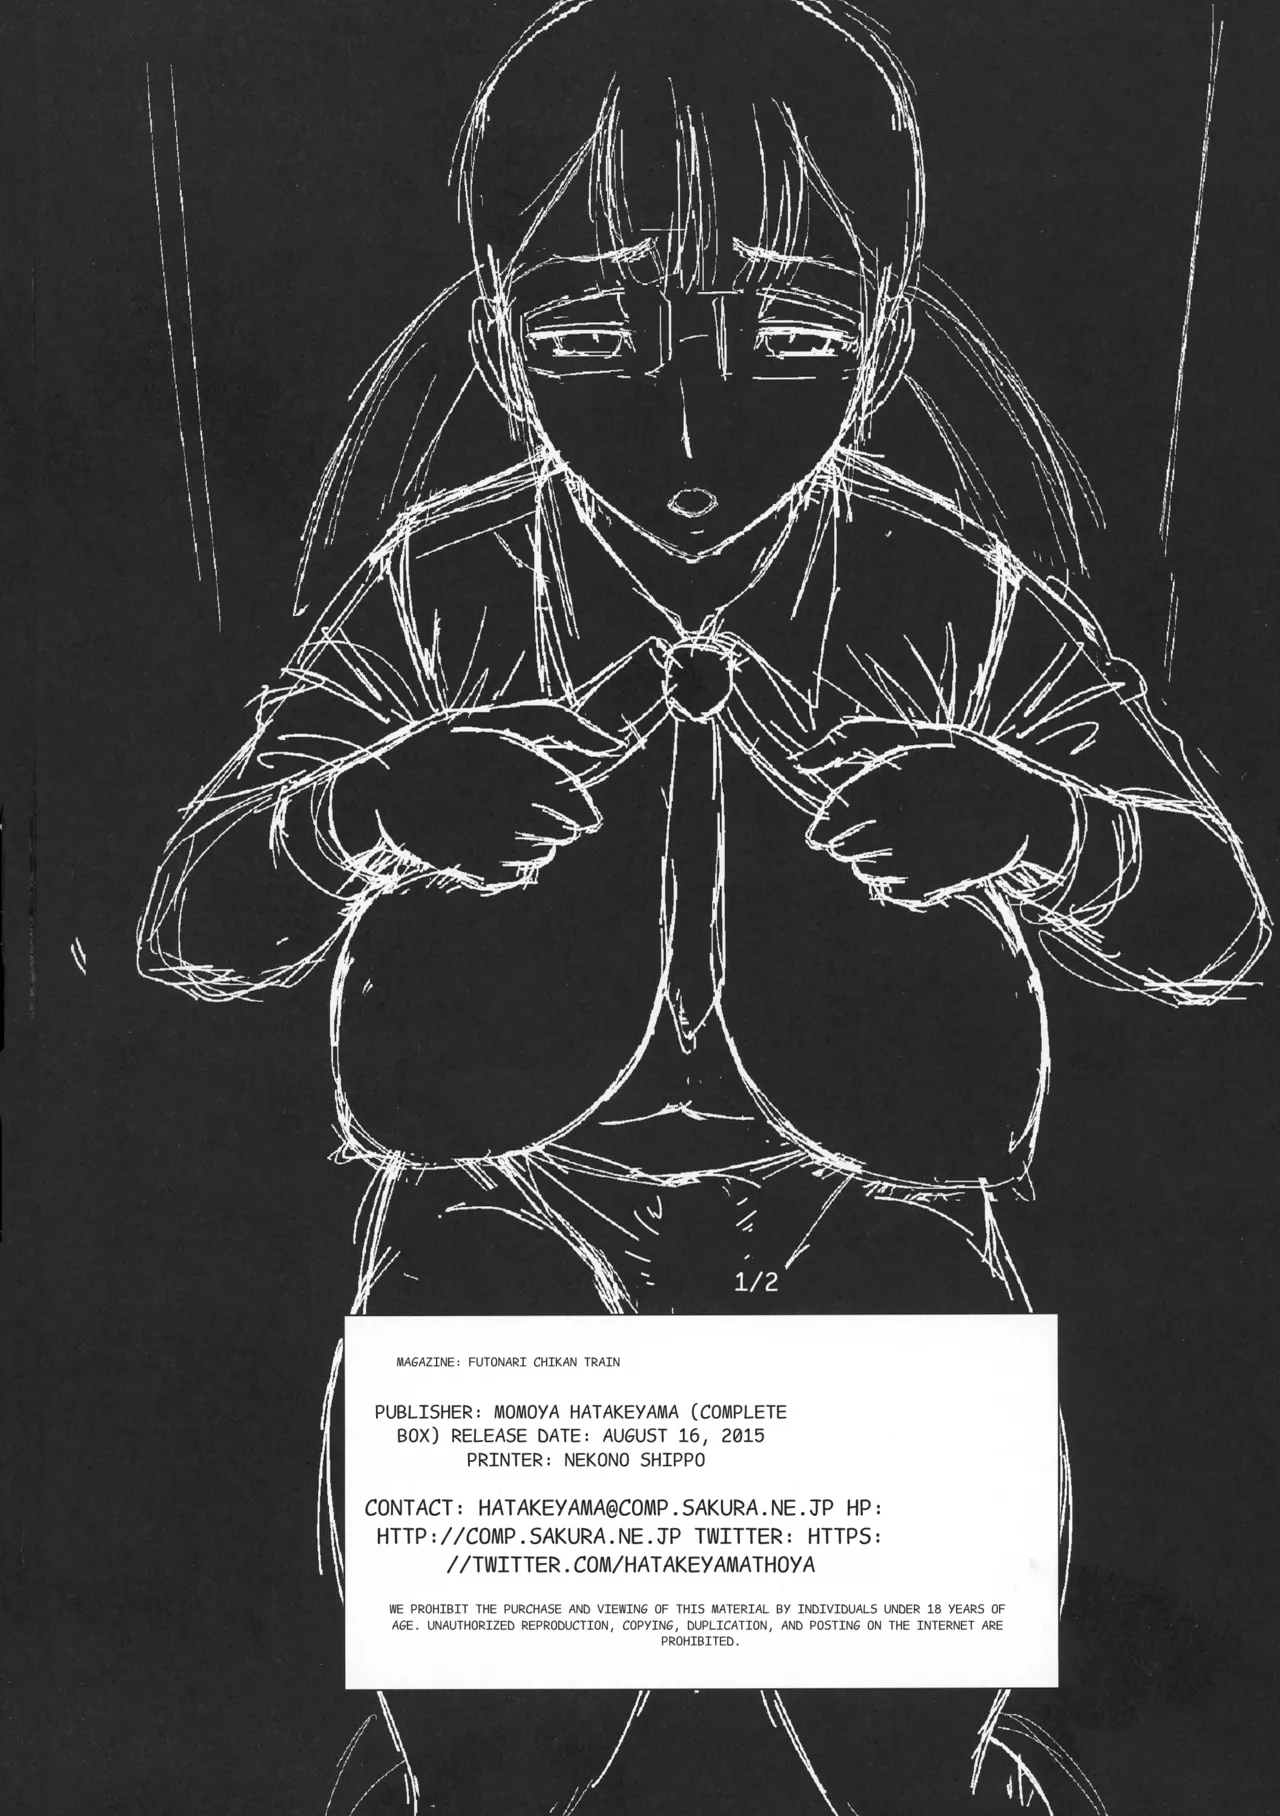 1/2
MAGAZINE: FUTONARI CHIKAN TRAIN
PUBLISHER: MOMOYA HATAKEYAMA (COMPLETE
BOX) RELEASE DATE: AUGUST 16, 2015
PRINTER: NEKONO SHIPPO
CONTACT: HATAKEYAMA@COMP.SAKURA.NE.JP HP:
HTTP://COMP.SAKURA.NE.JP TWITTER: HTTPS:
//TWITTER.COM/HATAKEYAMATHOYA
WE PROHIBIT THE PURCHASE AND VIEWING OF THIS MATERIAL BY INDIVIDUALS UNDER 18 YEARS OF
AGE. UNAUTHORIZED REPRODUCTION, COPYING, DUPLICATION, AND POSTING ON THE INTERNET ARE
PROHIBITED.